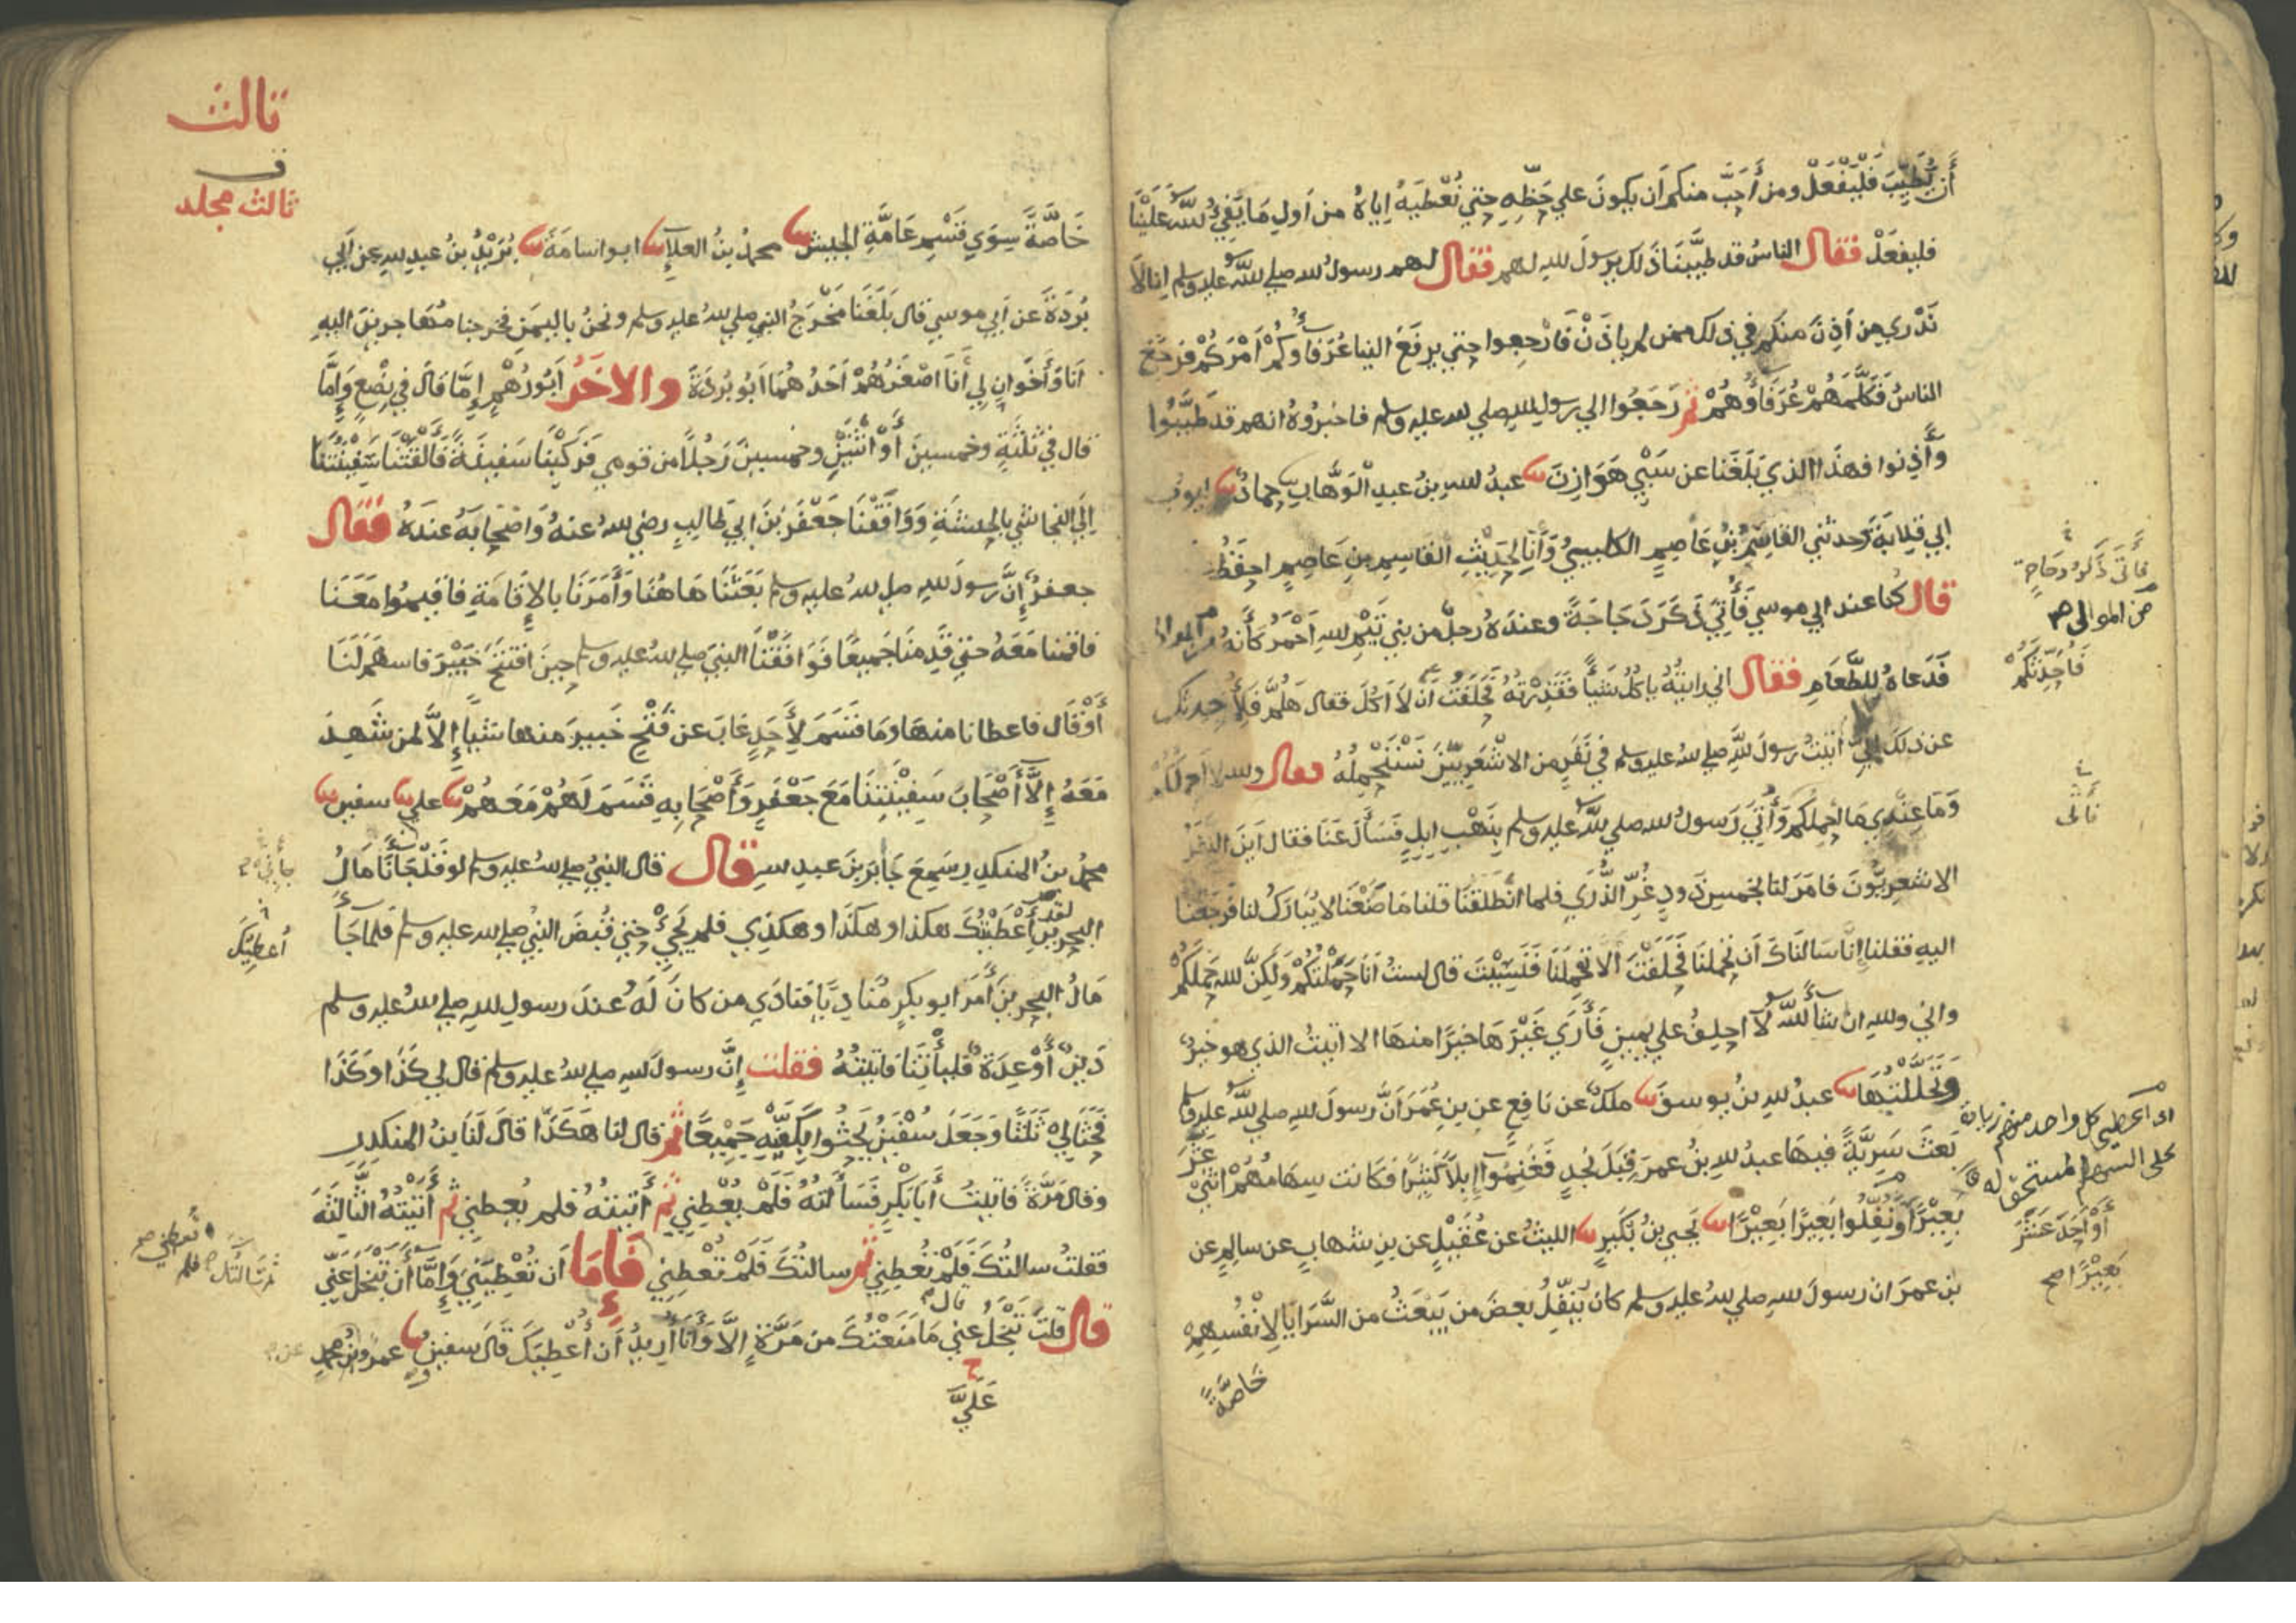 أَن يُطَيِّبَ فَلْيَفْعَلْ ومن أَحَبَّ منكم أن يكونَ علي حَظِّهِ حتي نُعْطِيَهُ إياهُ من أولِ مَا يُفِيُ اللهُ عَلَيْنَا
فليفعَلْ فقال الناسُ قد طَيَّبْنَا ذلك يرسولَ اللهِ لهم فقال لهم رسولُ الله صلي اللهُ عليه وسلم إنا لَا
نَدْرِي من أَذِنَ منكم في ذلك ممن لم ياذَنْ فَارْجِعوا حتي يرفَعَ الينا عُرَفَاؤُكُمْ أَمْرَكُمْ فرجَعَ
الناسُ فَكَلَّمَهُمْ عُرَفَاؤُهُمْ ثم رَجَعُوا الي رسولِ اللهِ صلي الله عليه وسلم فاخبَرُوهُ انهم قد طَيَّبُوا
وأَذِنوا فهذَا الذي بَلَغَنا عن سَبْيِ هَوَازِنَ ثنا عبدُ اللهِ بنُ عبدِ الْوَهَّابِ ثنا حمادٌ ثنا ايوب
ابي قِلَابَةَ وحدثني القاسِمُ بنُ عَاصِمٍ الكليبيُّ وَأَنَا لِحَدِيْثِ القاسِمِ بنِ عَاصِمٍ احفَظُ
قال كُنا عند ابي موسي فَأُتِيَ ذَكَرَ دَجَاجَةً وعندَهُ رجلٌ من بني تَيْمِ اللهِ أَحْمَرُ كَأَنَّهُ من الموالي
فَدَعَاهُ للطَّعَامِ فقال اني رايتُهُ ياكُلُ شَيأً فَقَذِرْتُهُ فَحَلَفْتُ أن لَا آكُلَ فقال هَلُمَّ فَلأُحدثكم
عن ذلكَ إِنِّي اتيتُ رسولَ اللهِ صلي اللهُ عليه وسلم في نَفَرٍ من الاشْعَرِيِّيْنَ نَسْتَحْمِلُهُ فقال والله لا أحملُكُمْ
وَمَا عِنْدِي مَا احْمِلُكم وَأُتِيَ رَسولُ الله صلي اللهُ عليه وسلم بِنَهْبِ ابلٍ فَسَأَلَ عَنَا فقال اينَ النفَرُ
الاشعريُّونَ فامَرَ لنا بخمسِ ذَودٍ غُرِّ الذُّرَي فلما انْطَلَقْنَا قلنا مَا صَنَعْنَا لا يُبَارَكُ لنا فرجَعْنَا
اليهِ فقلنا إِنَّا سَالنَاكَ أن تحمِلَنَا فَحَلَفْتَ الَّا تحمِلَنَا فَنَسِيْتَ قال لستُ انَا حَمَلْتُكُمْ وَلَكِنَّ اللهَ حَمَلَكُمْ
واني واللهِ ان شَأَ اللهُ لَا احلِفُ علي يمينٍ فَأَرَي غَيْرَهَا خيرًا منهَا الا اتيتُ الذي هو خيرٌ
وَتَحَلَّلْتُهَا ثنا عبدُ اللهِ بنُ يوسفَ ثنا ملكٌ عن نافِعٍ عنِ بنِ عُمَرَ أنَّ رسولَ اللهِ صلي اللهُ عليه وسلم
بَعَثَ سَرِيَّةً فيهَا عبدُ اللهِ بنُ عمرَ قِبَلَ نجدٍ فَغَنِمُوا إِبِلًا كَثِيْرًا فكَانت سِهَامُهُمْ اثْنَيْ عَشَرَ
بَعِيْرًا وَنُفِّلُوا بَعِيرًا بَعِيْرًا ثنا يحيي بنُ بُكَيرٍ ثنا الليثُ عن عُقَيْلٍ عن بنِ شهابٍ عن سالمٍ عن
بن عمرَ ان رسولَ اللهِ صلي اللهُ عليه وسلم كان يُنَفِّلُ بعضَ من يَبْعَثُ من السَّرَايَا لِانْفُسِهِمْ
خَاصَّةً
فَأُتيَ ذَكَرَ دجَاجة
من الموالي صح
فَأُحَدِّثَكُمْ
فأتى
اى اعطى كل واحد منهم زيادة
على السهم المستحق له
أَوْ أَحَدَ عَشَرَ
بَعِيْرًا صح
ثالث
ف
ثالث مجلد
خَاصَّةً سِوَي قَسْمِ عَامَّةِ الجيشِ ثنا محمدُ بنُ العلآءِ ثنا ابو اسامَةَ ثنا بُرَيْدُ بنُ عبدِ اللهِ عن أبي
بُردَةَ عن أبي موسي قال بَلَغَنَا مَخْرَجُ النبي صلي اللهُ عليه وسلم ونحنُ باليمَنِ فخرجنا مُهَاجرينَ اليهِ
أنا وَأَخَوَانِ لِي أَنَا اصْغَرُهُمْ أَحَدُهُمَا أَبُو بُرْدَةَ والاخَرُ أَبُو رُهْمٍ إمَّا قال في بِضْعٍ وَإِمَّا
قال في ثلثةٍ وخمسينَ أَوْ اثْنَيْنِ وخمسينَ رَجُلًا من قومي فَرَكِبْنَا سَفِينَةً فَأَلْقَتْنَا سَفِيْنَتُنَا
إلَى النجاشي بالحبشةِ وَوَافَقْنَا جَعْفَرَ بْنَ ابي طالبٍ رضي اللهُ عنهُ وَاصْحَابَهُ عندَهُ فقال
جعفرُ إنَّ رسولَ اللهِ صلي اللهُ عليه وسلم بَعَثَنَا هَاهُنَا وَأَمَرَنَا بالإِقَامَةِ فاقيموا مَعَنَا
فاقمنا مَعَهُ حتي قَدِمنَا جَمِيعًا فَوَافَقْنَا النبيَ صلي اللهُ عليه وسلم حينَ افْتَتَحَ خَيْبَرَ فاسهَمَ لَنَا
أَوْ قَال فاعطانا منهَا ومَا قَسَمَ لِأَحَدٍ غابَ عن فَتْحِ خَيبرَ منها شيًا إِلَّا لمن شَهِدَ
مَعَهُ إِلَّا أَصْحَابَ سَفِيْنَتِنَا مَعَ جَعْفَرٍ وَأَصْحَابِهِ قَسَمَ لَهُمْ مَعَهُمْ ثنا علي ثنا سفين ثنا
محمدُ بنُ المنكدِرِ سَمِعَ جَابِرَ بنَ عبدِ اللهِ قال قال النبيُ صلي اللهُ عليه وسلم لو قَدْ جَأنَا مَالُ
البحرينِ لقد أَعْطَيْتُكَ هكذا وهكَذَا وهكذَي فلم يَجِئْ حتي قُبضَ النبيُ صلي الله عليه وسلم فلما جَأَ
مَالُ البحرينِ أَمَرَ ابو بكرٍ مُنَاديًا فَنَادَي من كانَ لَهُ عندَ رسولِ اللهِ صلي اللهُ عليه وسلم
دَينٌ أَوْ عِدَةٌ فليأتِنَا فاتيتُهُ فقلت إنَّ رسولَ اللهِ صلي اللهُ عليه وسلم قال لي كَذَا وَكَذَا
فَحَثَا لِيْ ثَلَثًا وَجَعَلَ سُفْيَنُ يَحْثُوا بِكَفَّيْهِ جَمِيْعًا ثم قال لنا هَكَذَا قَالَ لَنَا بنُ المنكدرِ
وقال مَرَّةً فاتيتُ أَبَا بَكْرٍ فَسَأَلتُهُ فَلَمْ يُعْطِنِي ثم أَتيتُهُ فلم يُعطني ثم أَتَيْتُهُ الثَّالِثَةَ
فقلتُ سالتُكَ فَلَمْ تُعْطِنِي ثم سالتُكَ فَلَمْ تُعْطِنِي فَإِمَا أن تُعْطِيَنِي وَإِمَّا أَنْ تَبْخَلَ عَنِّي
قال قلتَ تَبْخَلُ عني مَا مَنَعْتُكَ من مَرَّةٍ إِلَّا وَأَنَا أُرِيدُ أن أُعْطِيَكَ قَالَ سفينُ ثنا عمرو عن محمدِ
عَلَيَّ
قال
أُعطِيتُكَ
ثم سَالتُك فلم تُعطني صح